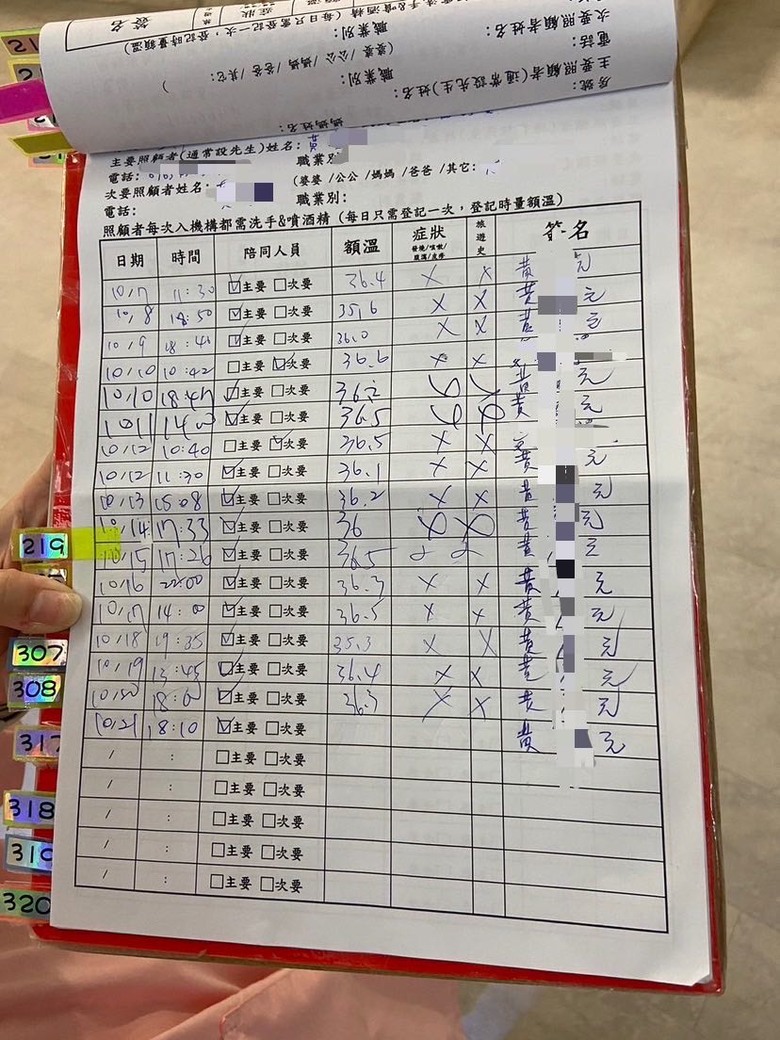 簽名
次要照顧者姓名:
職業別:
電話:
(婆婆 /公公 /媽媽 /爸爸 /其它: )
主要照顧者(通常設先生)姓名:
職業別:
房號:
媽媽姓名:
主要照顧者(通常設先生)姓名: 黃
職業別:
電話:
(婆婆 /公公 /媽媽 /爸爸 /其它:
次要照顧者姓名:
職業別:
電話:
照顧者每次入機構都需洗手&噴酒精 (每日只需登記一次,登記時量額溫)
日期 時間 陪同人員 額溫 症狀 發燒/咳嗽/腹瀉/皮疹 旅遊史 簽名
10/7 11:30 ☑主要 □次要 36.4 × × 黃 元
10/8 18:50 ☑主要 □次要 35.6 × × 黃 元
10/9 18:41 ☑主要 □次要 36.0 × × 黃 元
10/10 10:42 □主要 ☑次要 36.6 × ×
10/10 18:47 ☑主要 □次要 36.2 黃 元
10/11 ☑主要 □次要 36.5 黃 元
10/12 10:40 □主要 ☑次要 36.5 × ×
10/12 11:30 ☑主要 □次要 36.1 × × 黃 元
10/13 15:08 ☑主要 □次要 36.2 × × 黃 元
10/14 17:33 ☑主要 □次要 36 × × 黃 元
10/15 17:26 ☑主要 □次要 36.5 黃 元
10/16 22:00 ☑主要 □次要 36.3 × × 黃 元
10/17 14:0 ☑主要 □次要 36.5 × × 黃 元
10/18 19:35 ☑主要 □次要 35.3 × × 黃 元
10/19 13:45 ☑主要 □次要 36.4 × × 黃 元
10/20 18:0 ☑主要 □次要 36.3 × × 黃 元
10/21 18:10 ☑主要 □次要 黃 元
/ : □主要 □次要
/ : □主要 □次要
/ : □主要 □次要
/ : □主要 □次要
/ : □主要 □次要
219
307
308
317
318
319
320